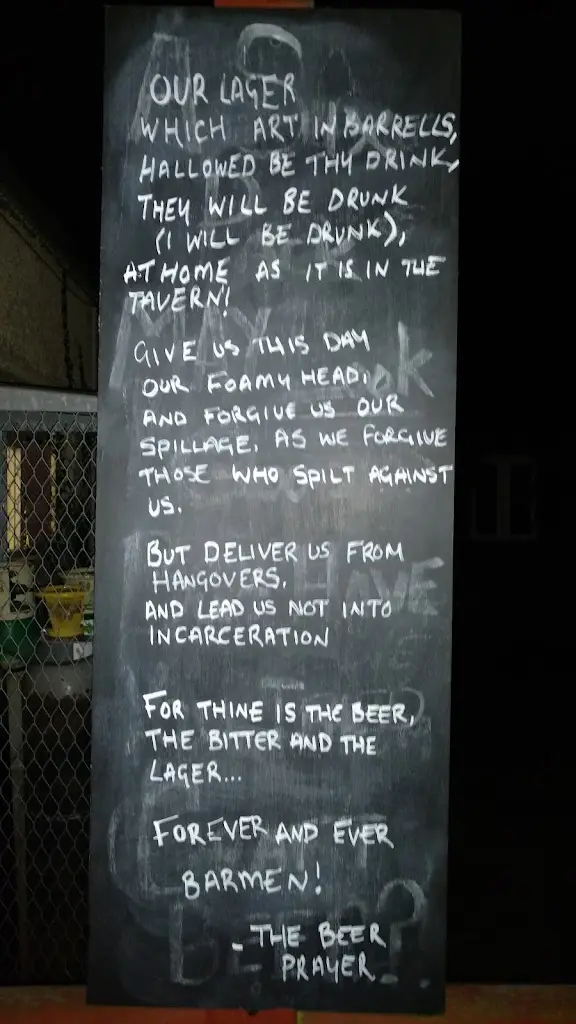 OUR LAGER
WHICH ART IN BARRELLS,
HALLOWED BE THY DRINK,
THEY WILL BE DRUNK
(I WILL BE DRUNK),
AT HOME AS IT IS IN THE
TAVERN!
GIVE US THIS DAY
OUR FOAMY HEAD,
AND FORGIVE US OUR
SPILLAGE, AS WE FORGIVE
THOSE WHO SPILT AGAINST
US.
BUT DELIVER US FROM
HANGOVERS,
AND LEAD US NOT INTO
INCARCERATION
FOR THINE IS THE BEER,
THE BITTER AND THE
LAGER...
FOREVER AND EVER
BARMEN!
- THE BEER
PRAYER